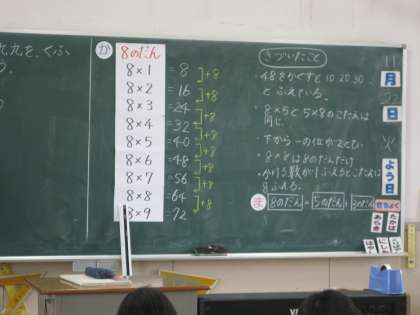 九九を、くふ
う。
か
8のだん
8×1 = 8
8×2 = 16
8×3 = 24
8×4 = 32
8×5 = 40
8×6 = 48
8×7 = 56
8×8 = 64
8×9 = 72
+8
+8
+8
+8
+8
+8
+8
+8
きづいたこと
・48をかくすと10.20.30
とふえている。
・8×5と5×8のこたえは
同じ。
・下から一の位が2とび
・8×8は8のだんだけ
・かける数が1ふえるとこたえは
8ふえる。
ま 8のだん = 5のだん + 3のだん
11
月
日
火
よう日